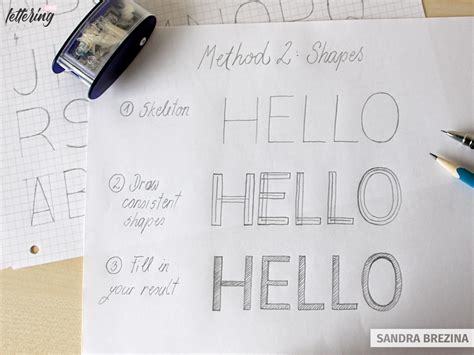 lettering
Method 2: Shapes
① Skeleton
HELLO
② Draw
consistent
shapes
HELLO
③ Fill in
your result
HELLO
SANDRA BREZINA